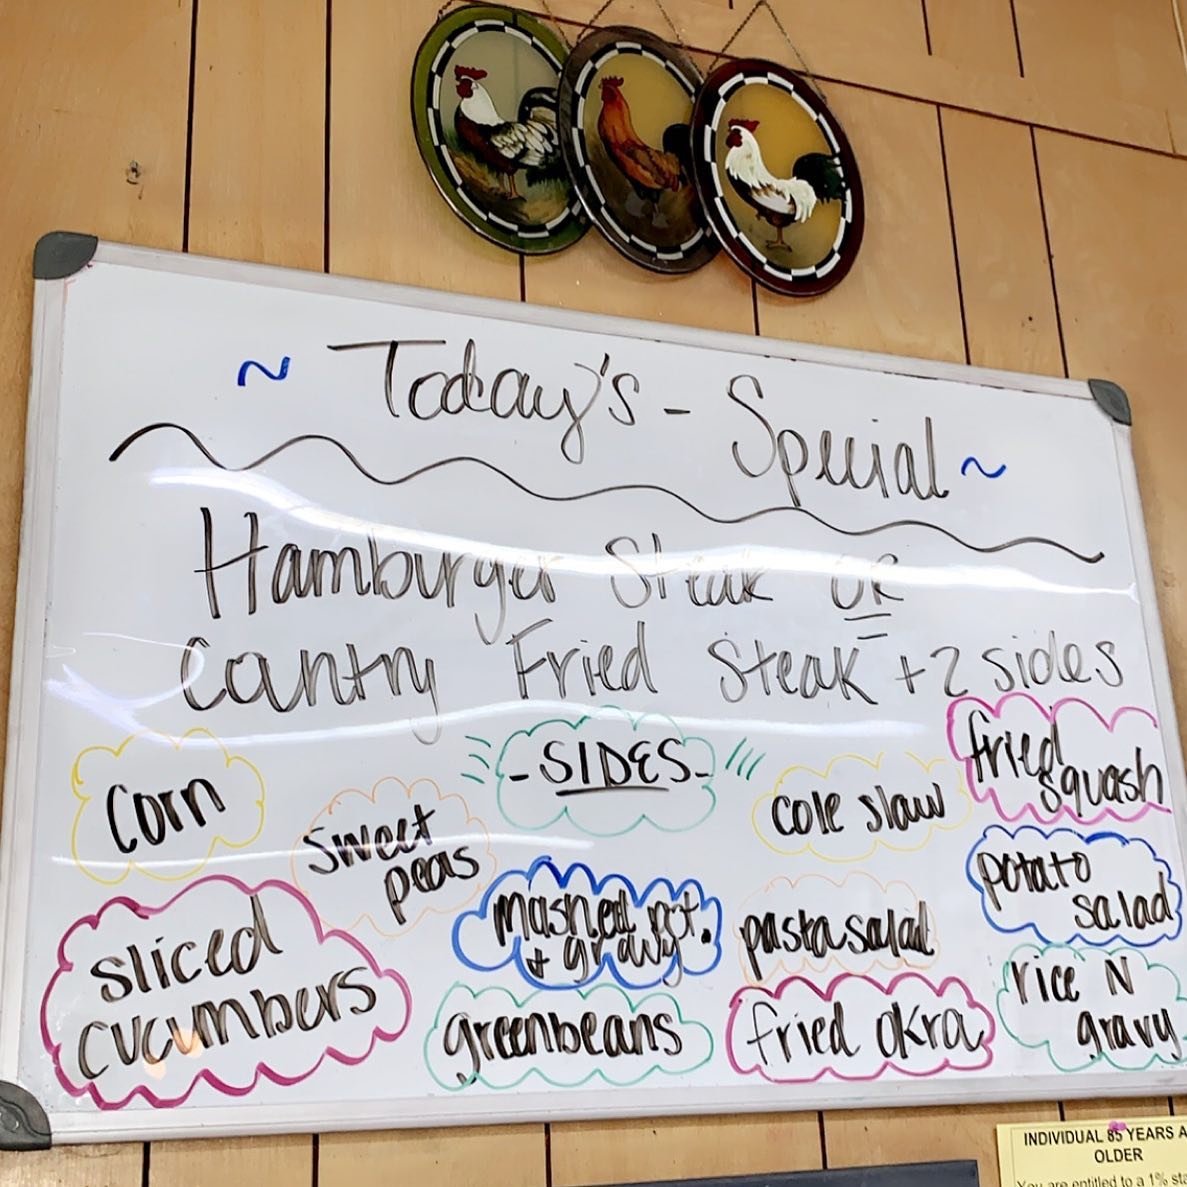 ~ Today's - Special ~
Hamburger Steak OR
Cantry Fried Steak + 2 sides
- SIDES -
Corn
sweet
peas
cole slaw
fried
squash
sliced
cucumbers
mashed pot.
+ gravy
pasta salad
potato
salad
greenbeans
fried okra
rice N
gravy
INDIVIDUAL 85 YEARS
OLDER
You are entitled to a 1%